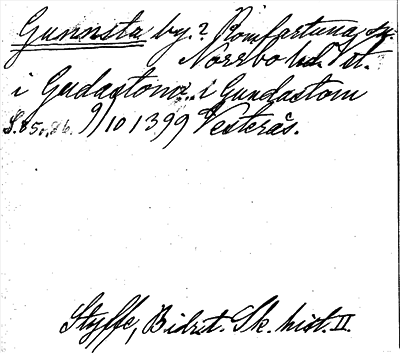 Gunnsta by.? Romfartuna, sn.
Norrbo hd. Vst.
i Gudastom.. i Gundastom
S. 85, 86. 9/10 1399 Vesterås.
Styffe, Bidrt. Sk. hist. II.